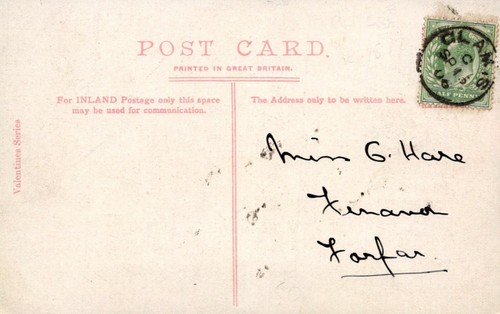 POST CARD.
PRINTED IN GREAT BRITAIN.
For INLAND Postage only this space
may be used for communication.
The Address only to be written here.
Valentines Series
GLAMIS
Miss G. Hare
Finavon
Forfar.